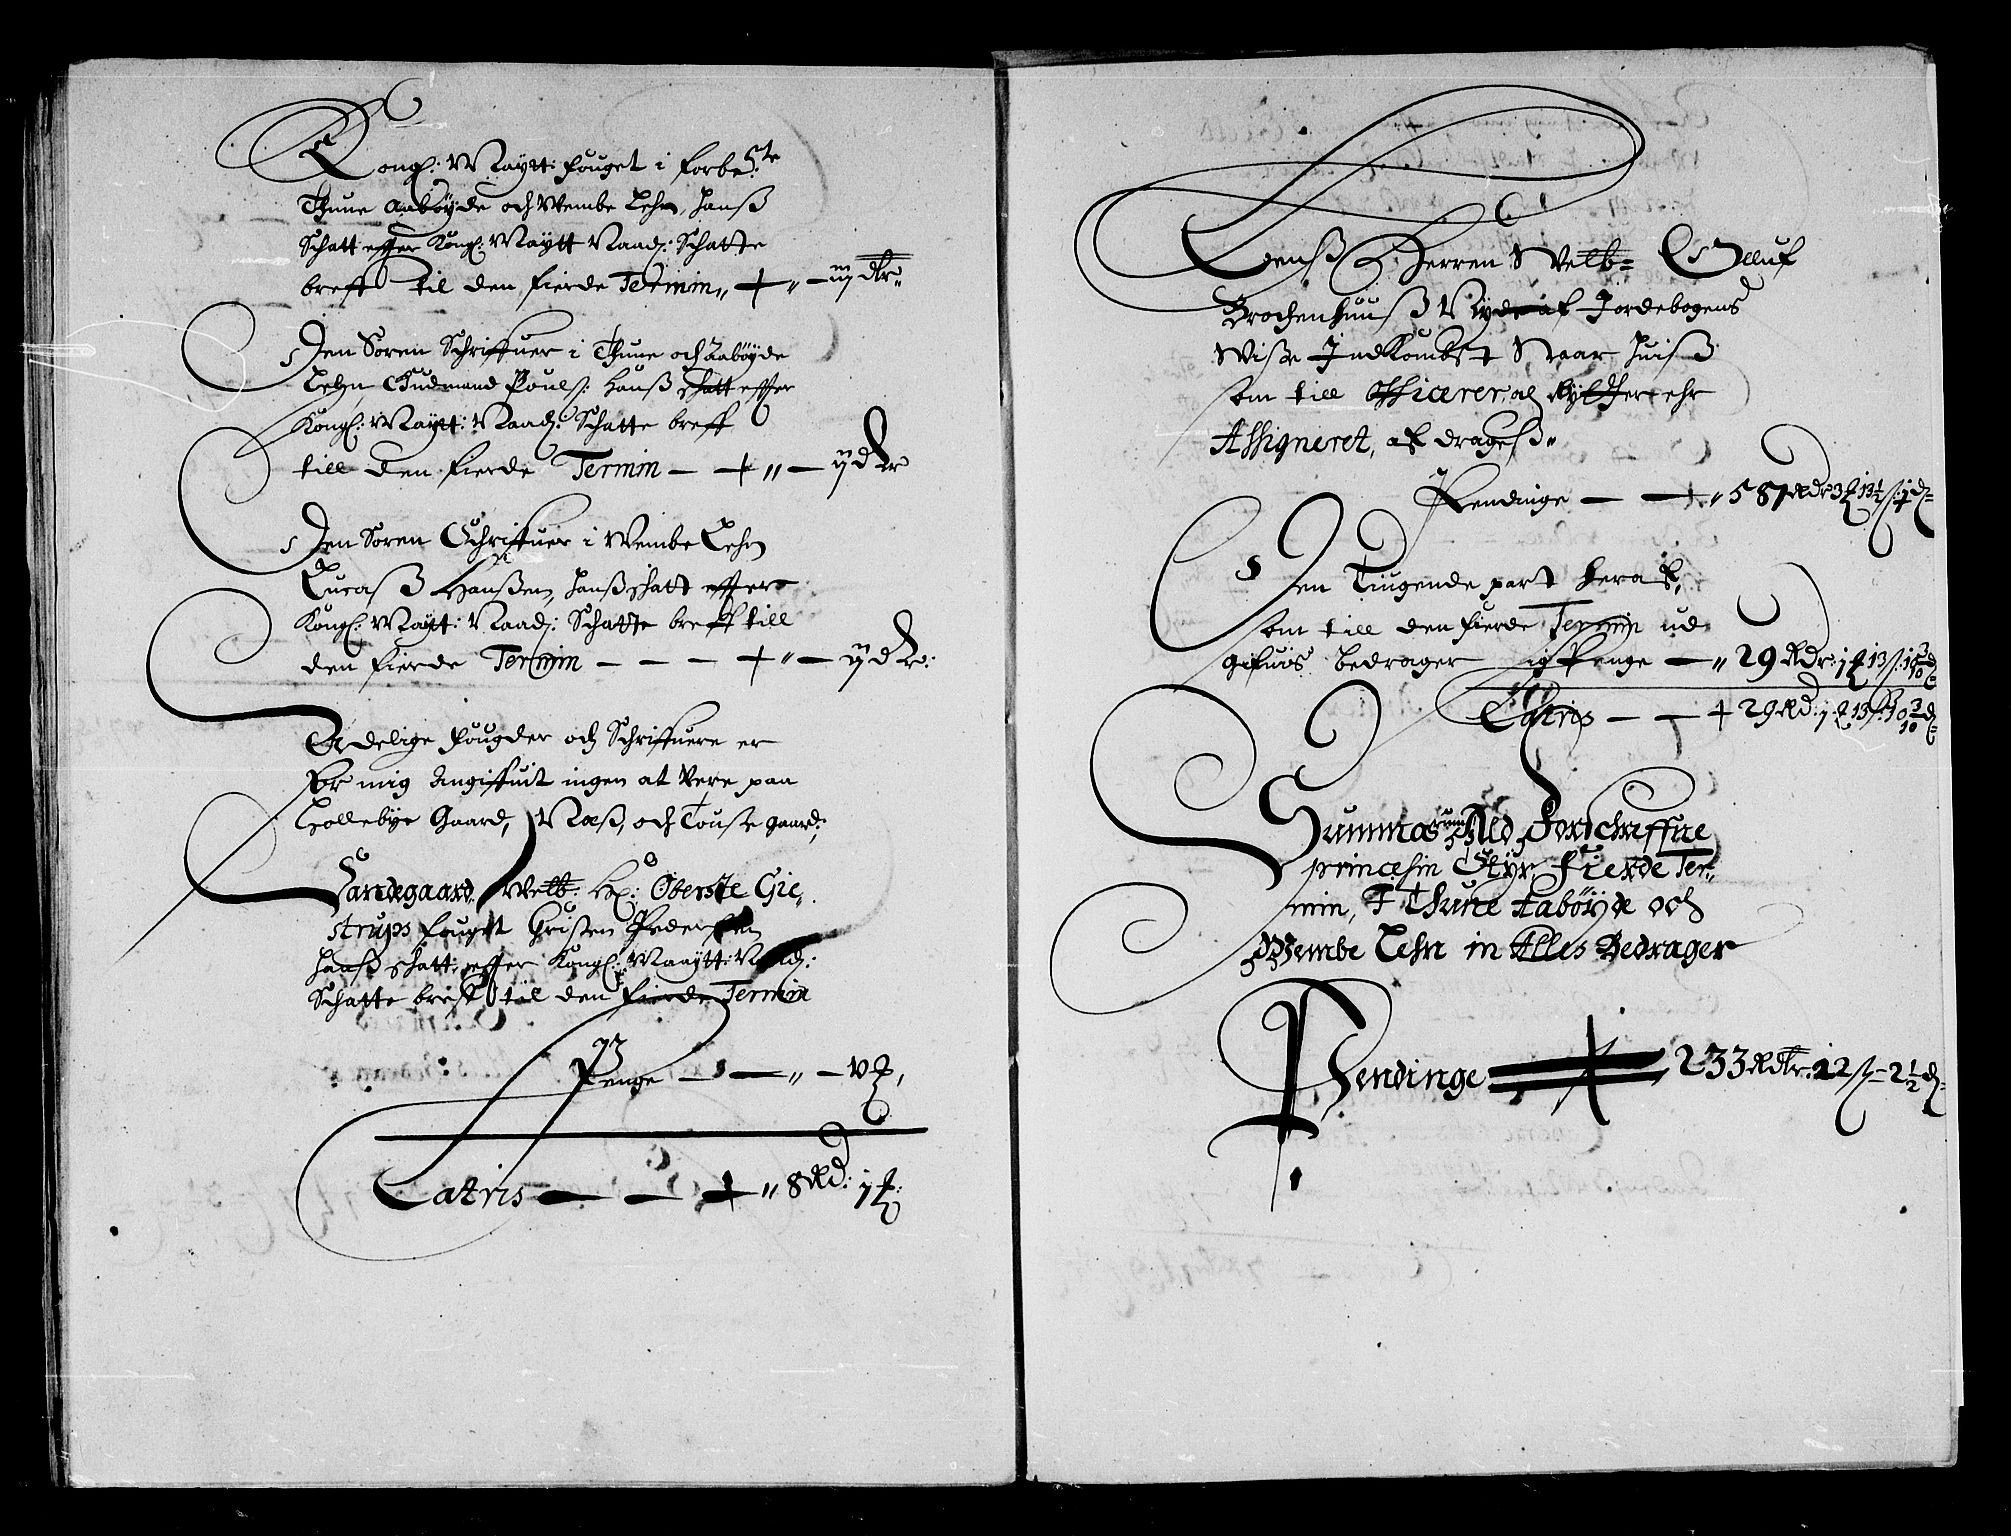 Kongl: Maÿtt: fouget i forbe:te
Thune Aaböÿde och Wembe Lehn, hanß
Schatt effter Kongl: Maÿtt Naad: Schatte
breff til den fierde Termin,, + ,, — iiij dlr:
Den Soren Schriffuer i Thune och Aabøÿde
Lehn Gudmand Pouls: hanß schatt effter
Kongl: Maÿtt: Naad: Schatte breff
till den fierde Termin — + ,, — ij dlr
Den Soren Schriffuer i Wembe Lehn
Lucas Hanßen, hanß schatt effter
Kongl: Maÿtt: Naad: Schatte breff till
den fierde Termin — — — + ,, — ij dlr:
Adelige fougder och Schriffuere er
for mig Angiffuit ingen at Vere paa
Hollebÿe Gaard, Næß, och Touse gaard;
Sandegaard Welb: H: Oberste Gie,
strups fougit Christen Pedersen
hanß schatt, effter Kongl: Maaÿtt: Naad:
Schatte breff til den fierde Termin
Penge — — ,, — v ort,
Latris — — + ,, 8 Rd: j ort:
Lenß Herren Welb= H Olluf
Brochenhuuß Nÿder af Jordebogens
Wiße Indkombst Naar huiß
som till Officerer och Rÿtter ehr
Assigneret, af drages,,
Pendinge — — + ,, 587 Rdr 3 ort 13½ s: j d=
Den Tiugende part heraf,
som till den fierde Termin ud
gifuis bedrager sig Penge — ,, 29 Rdr: j ort 13 s: 10 3/10 d
Latris — — + 29 Rd: j ort 13 s: 10 3/10 d=
Summarum Ald Forschreffne
princesin Styr, Fierde Ter-
min, Af Thune Aabøÿde och
Wembe Lehn in Alles Bedrager
Pendinge 233 Rdlr. 12 s= 2½ d=